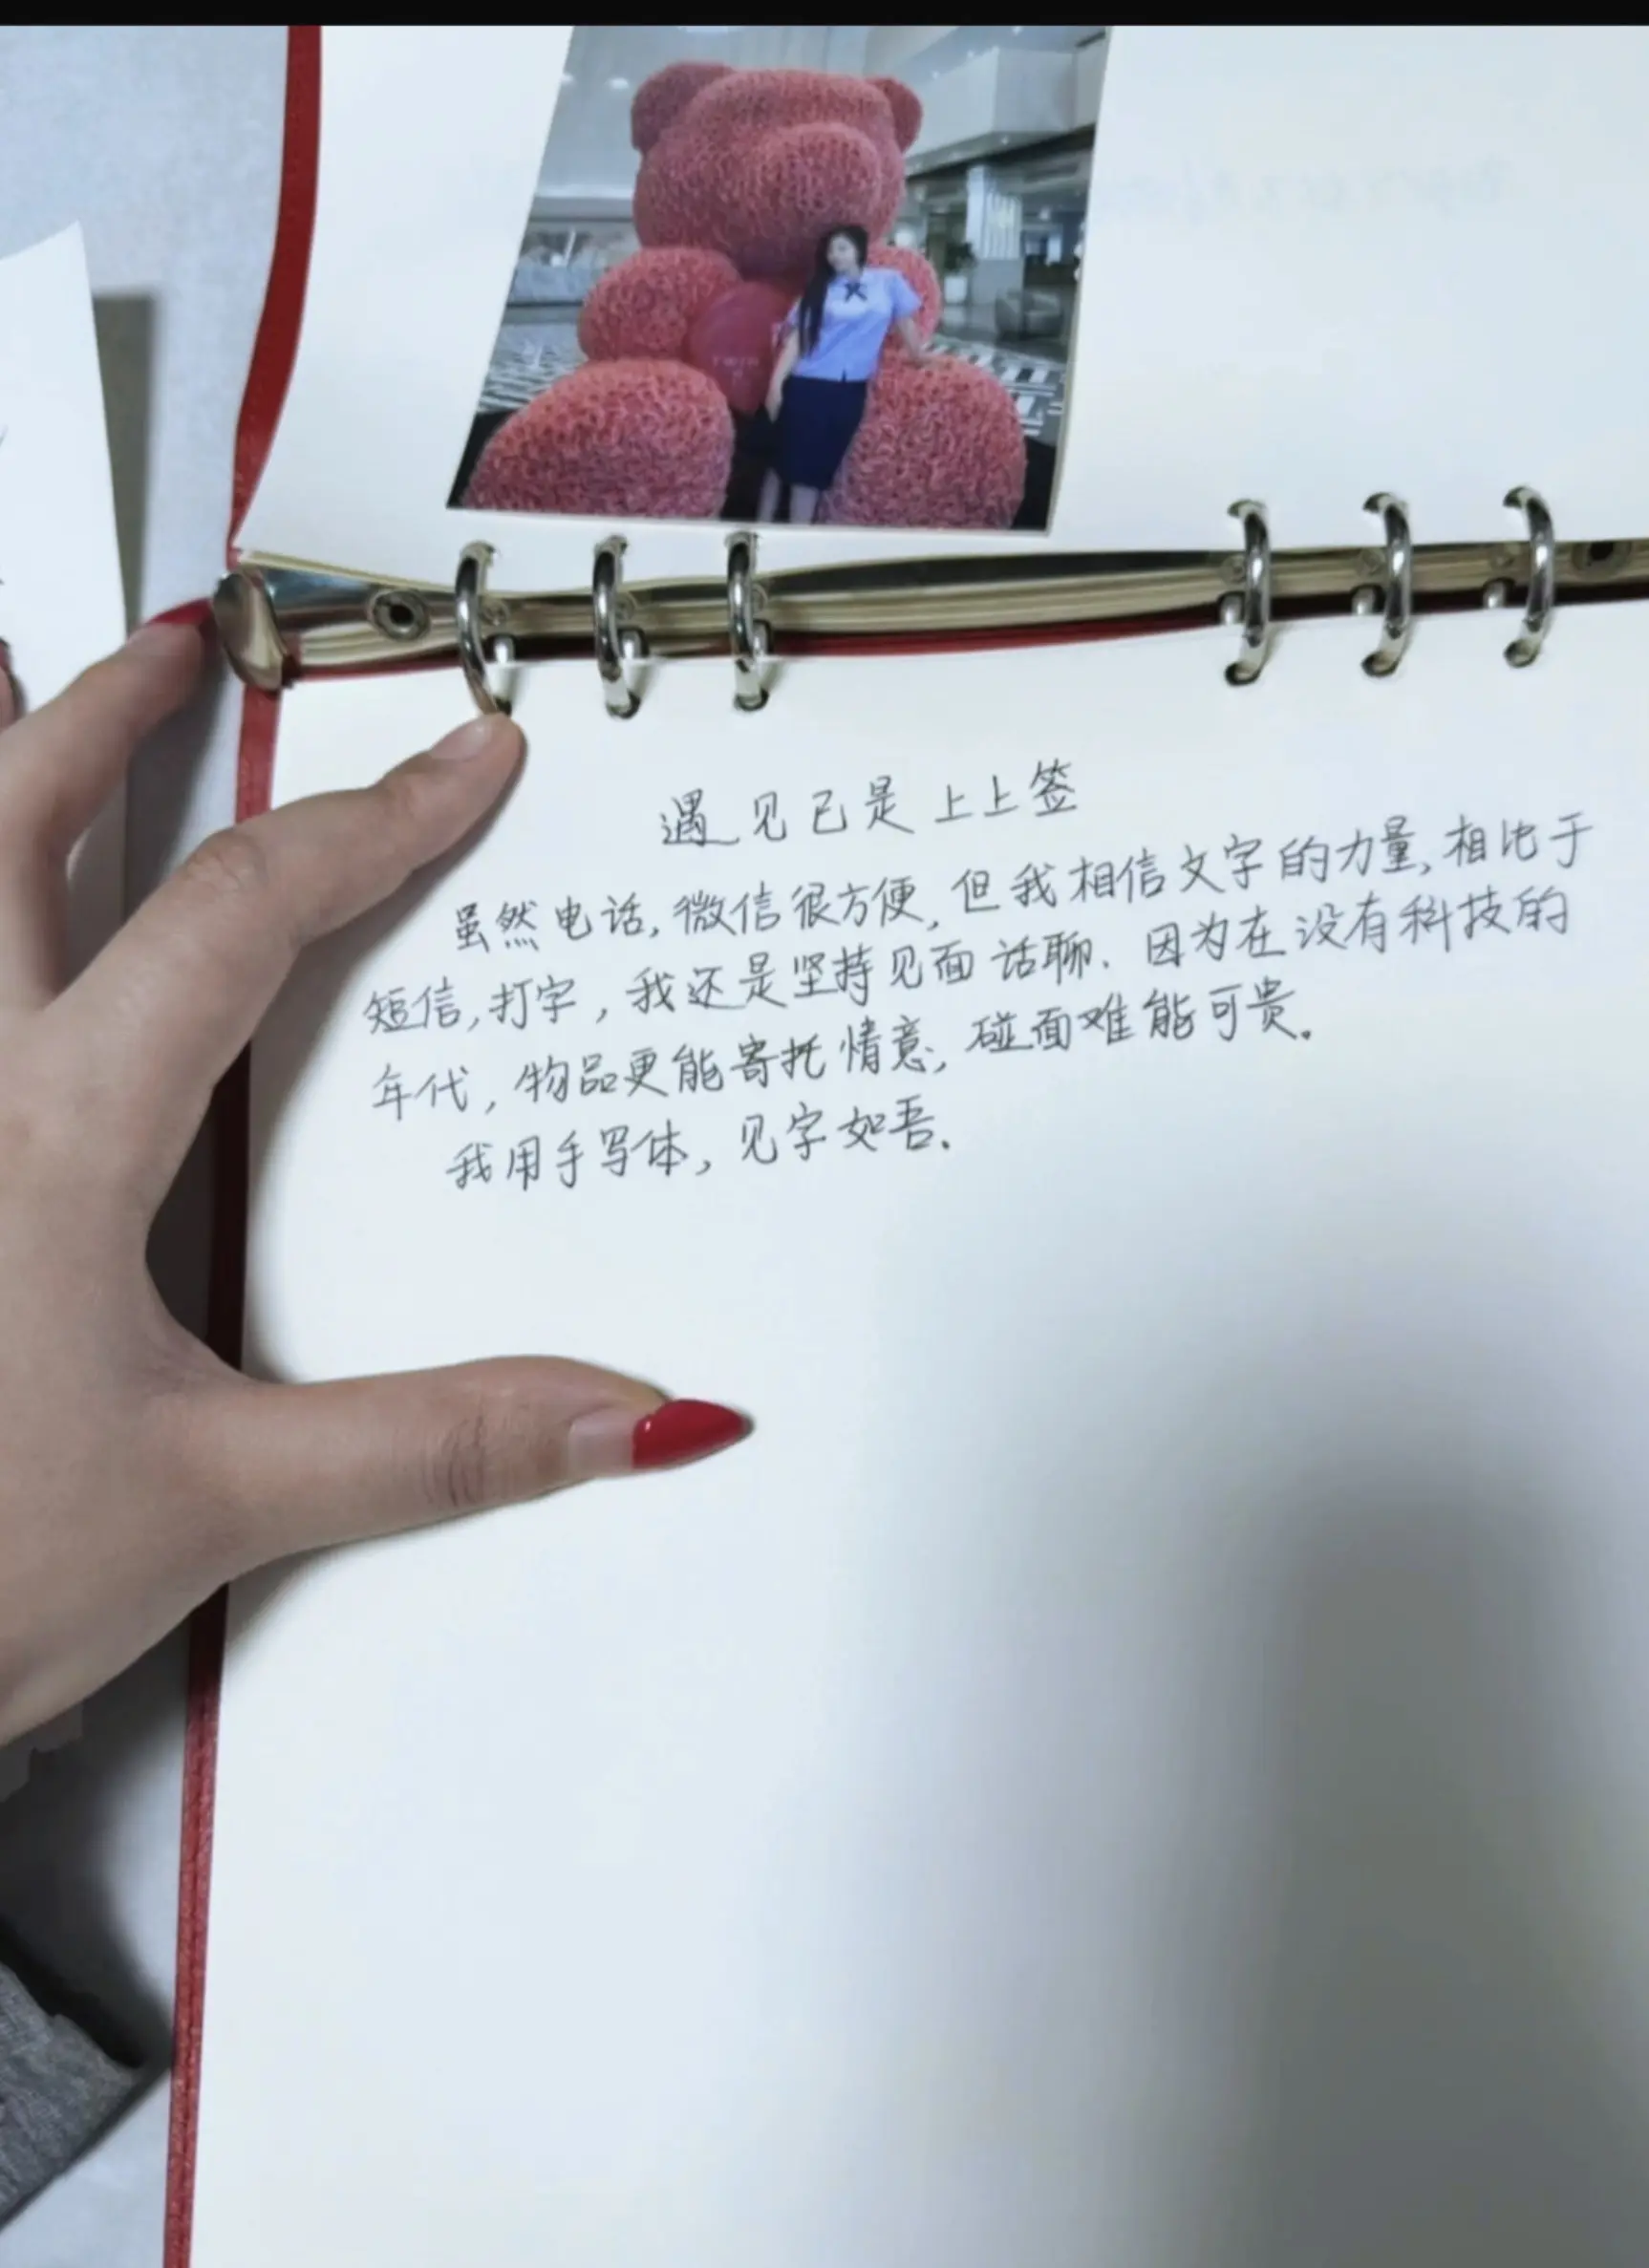 遇见已是上上签
虽然电话,微信很方便,但我相信文字的力量,相比于
短信,打字,我还是坚持见面话聊.因为在没有科技的
年代,物品更能寄托情意,碰面难能可贵.
我用手写体,见字如吾.